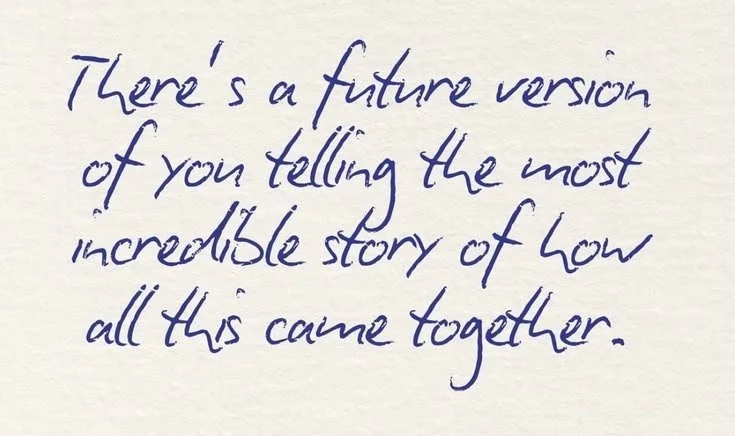 There's a future version
of you telling the most
incredible story of how
all this came together.